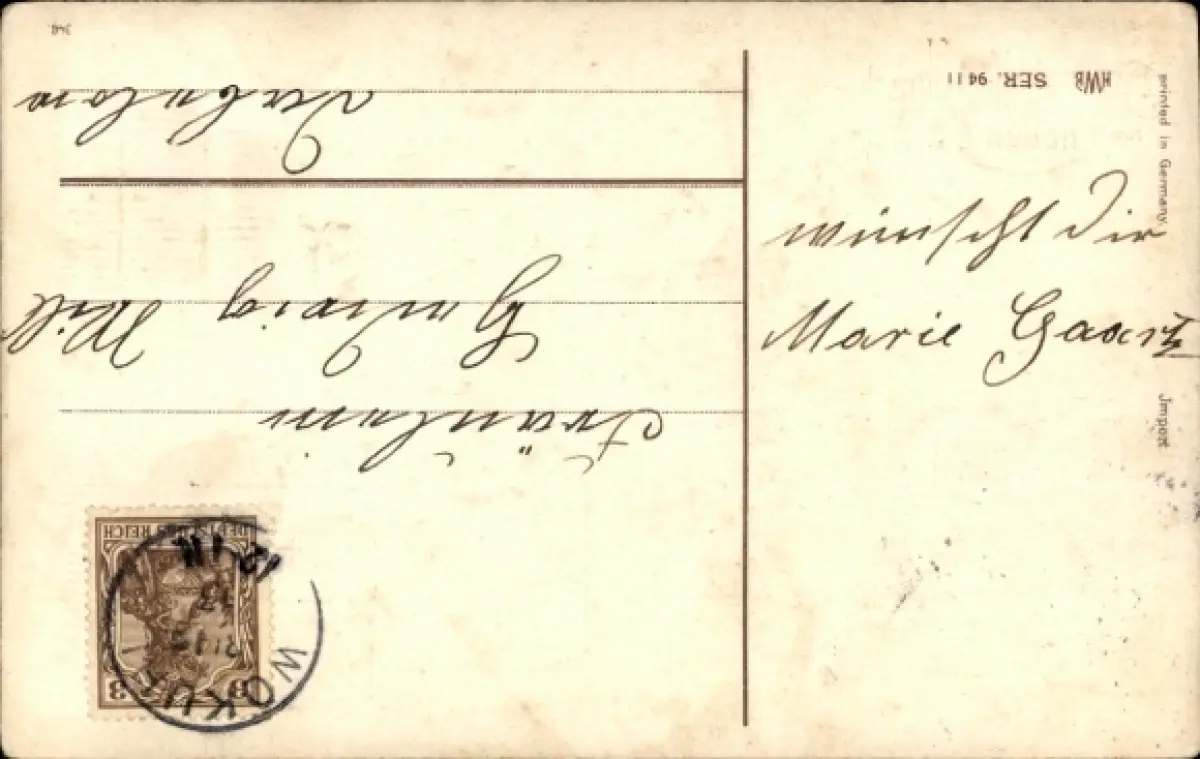 wünscht Dir
Marie Gaartz
Fräulein
Hedwig Witt
HWB SER. 9411
printed in Germany.
Import
DEUTSCHES REICH
3 3
346